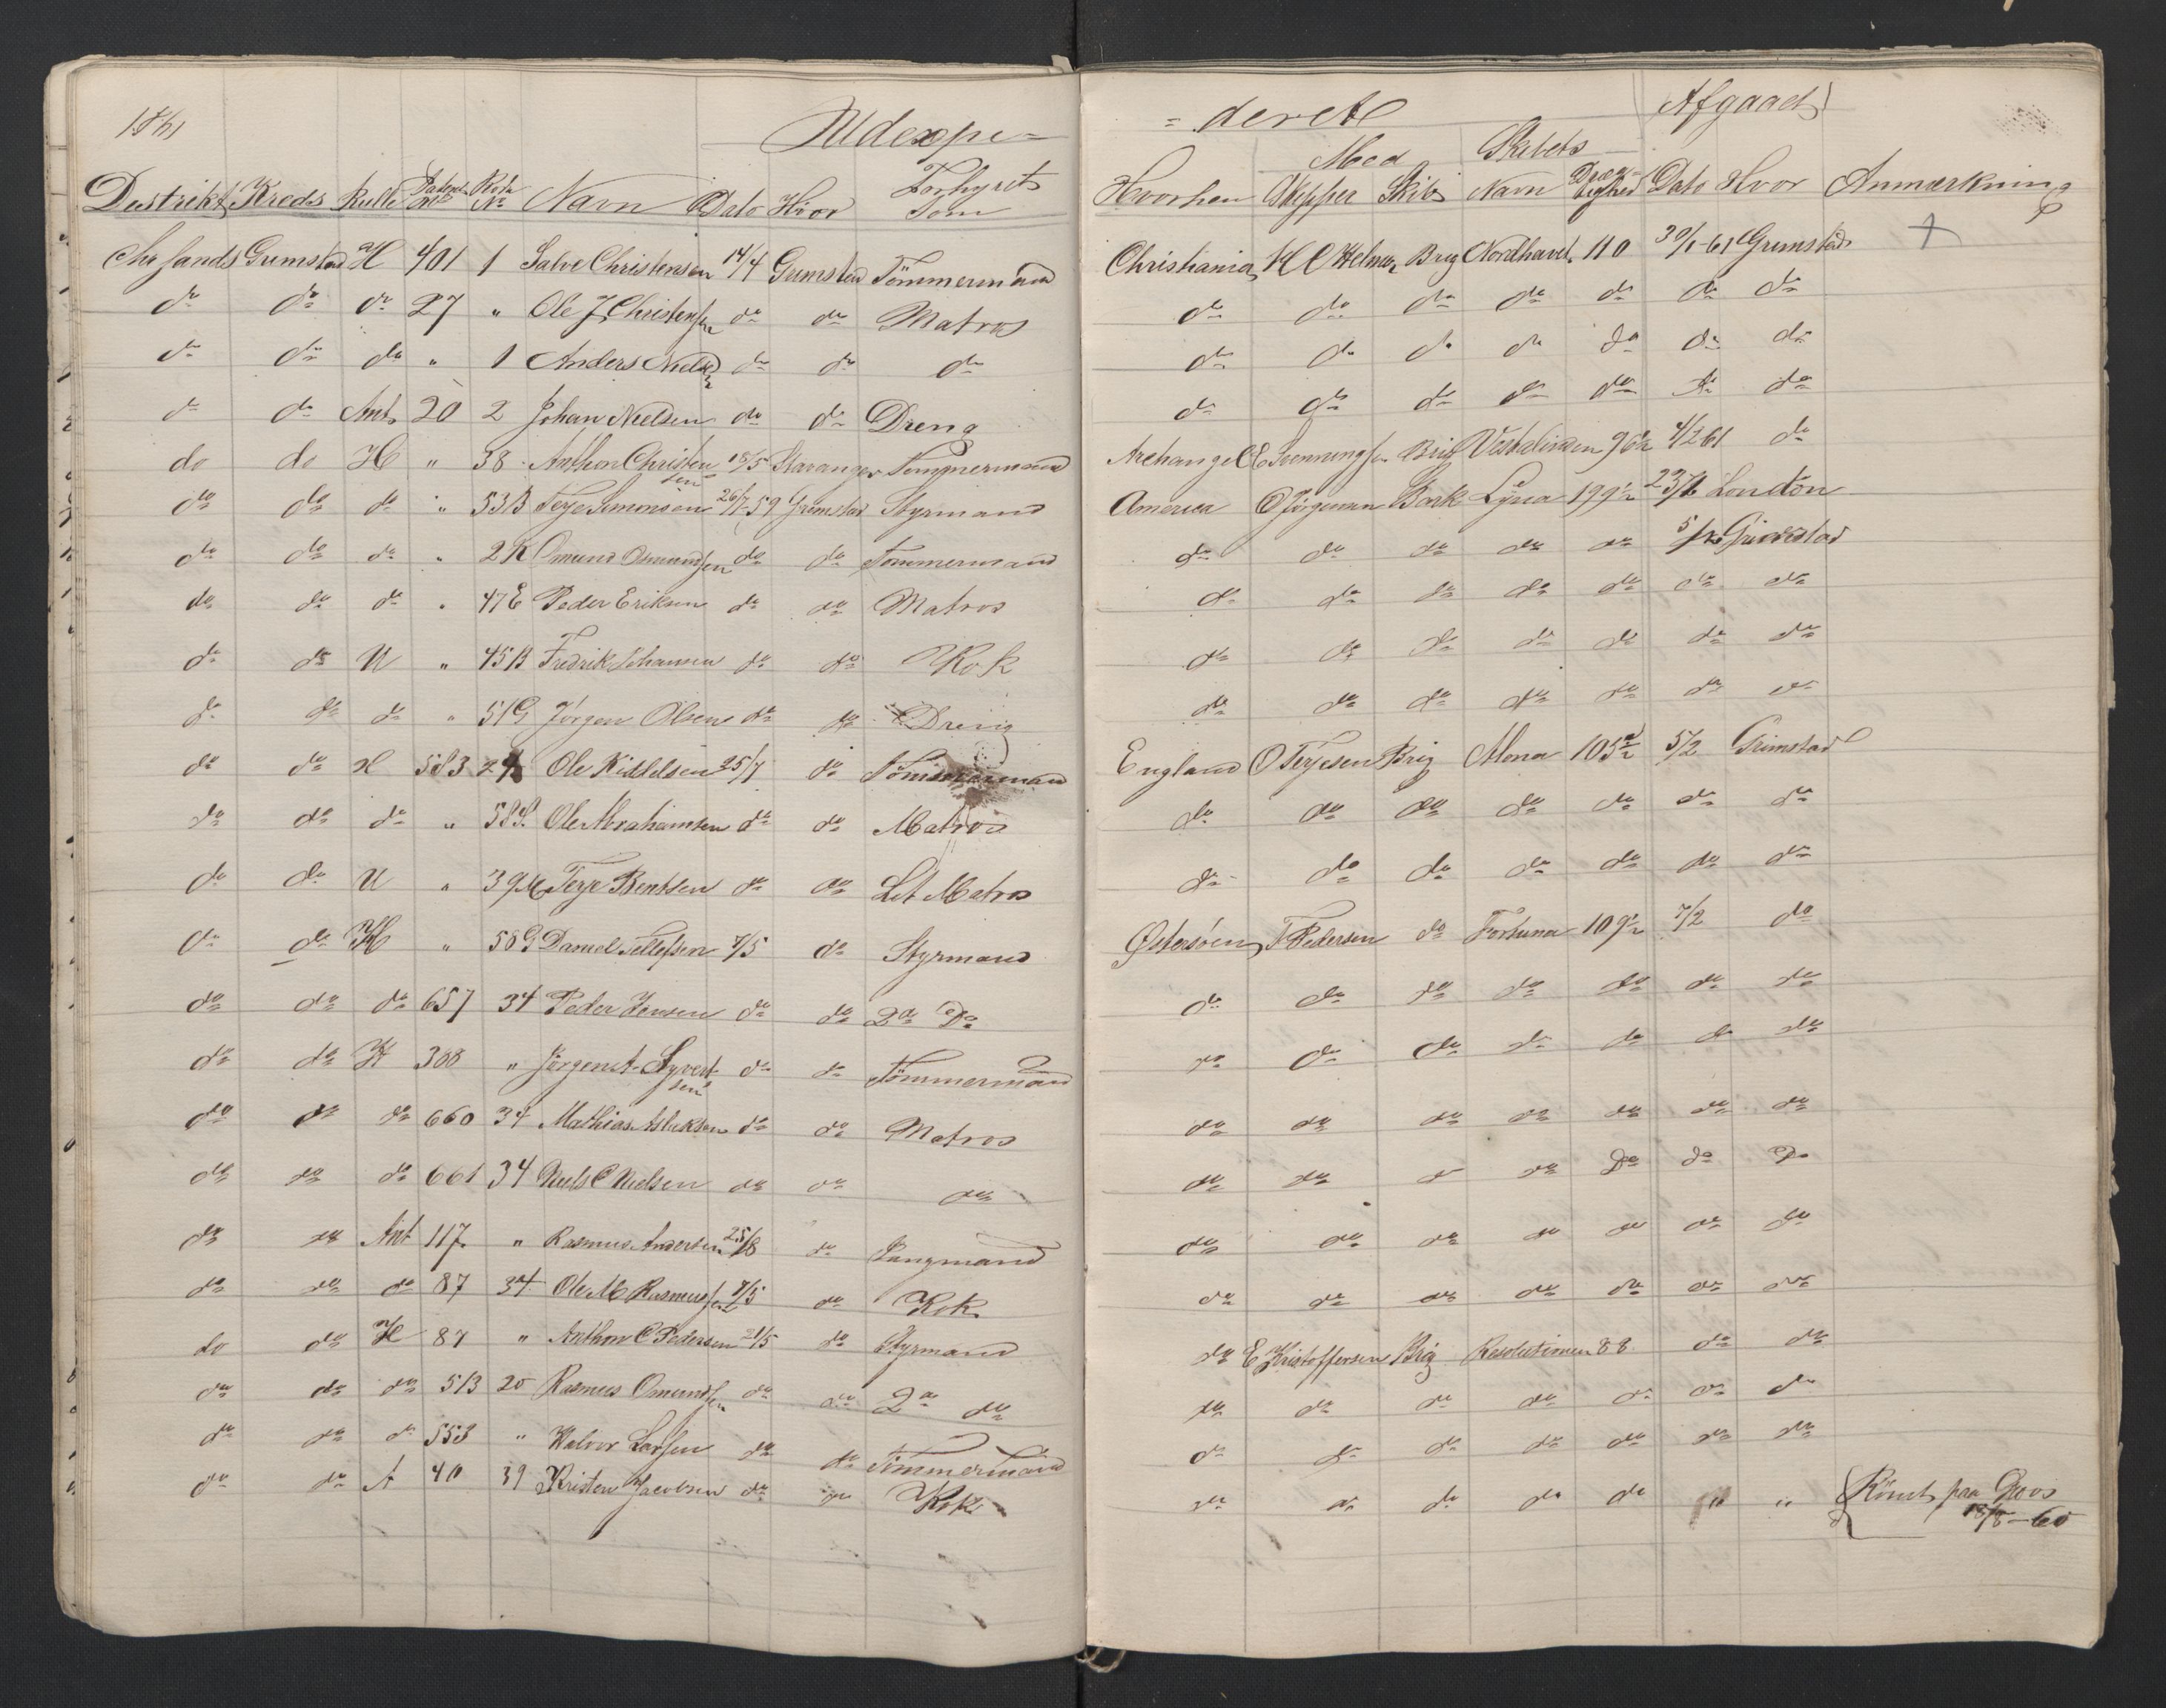 1861
Udexpe=
= deret
Afgaaet
Distrikt Kreds Rulle Patent No Rode No Navn Dato Hvor Forhyret som
Hvorhen Med Skipper Skibs Skibets Navn Dræg-tighed Dato Hvor Anmærkning
Chrsands Grimstad H 401 1 Salve Christensen 14/4 Grimstad Tömmermand Christiania Brig Nordhavet 110 30/1-61 Grimstad +
do do do 27 " Ole J Christensen do do Matros do do do do do do do
do do do " 1 Anders Nielsen do do do do do do do do do do
do do Ant 20 2 Johan Nielsen do do Dreng do do do do do do do
do do H " 38 Anthon Christensen 18/5 Stavanger Tømmermand Archangel E Svenningsen Brig 96½ 4/2 61 do
do do do " 53B Terje Simonsen 26/7-59 Grimstad Styrmand America O Jörgensen Bark Lyna 199½ London
do do do " 2K Omund Osmundsen do do Tømmermand do do do do do Grimstad
do do do " 47E Peder Eriksen do do Matros do do do do do do do
do do U " 45B Fredrik Johansen do do Kok do do do do do do do
do do do " 51G Jörgen Olsen do do Dreng do do do do do do do
do do H 583 24 Ole Kittelsen 25/1 do Tömmermand England O Terjesen Brig Alona 105½ 5/2 Grimstad
do do do " 58S Ole Abrahamsen do do Matros do do do do do do do
do do U " 39M Terje Bentsen do do Let Matros do do do do do do do
do do H " 58G Daniel Tellefsen 7/5 do Styrmand Østersøen T Pedersen do Fortuna 109½ 7/2 do
do do do 657 34 Peder Jensen do do 2n Do do do do do do do do
do do H 388 " Jörgen A. Syvertsen do do Tömmermand do do do do do do do
do do do 660 34 Mathias Aslaksen do do Matros do do do do do do do
do do do 661 34 Niels C Nielsen do do do do do do do Do do Do
do do Ant 117 " Rasmus Andersen 25/8 do Jungmand do do do do do do do
do do do 87 34 Ole M Rasmussen 7/5 do Kok do do do do do do do
do do H 87 " Anthon C Pedersen 21/5 do Styrmand do E Kristoffersen Brig Resolutionen 88 do do
do do do 513 20 Rasmus Omundsen do do 2n do do do do do do do do
do do do 553 " Halvor Larsen do do Tömmermand do do do do do do do
do do A 40 39 Kristen Jacobsen do do Kok do do do do do " " Römt paa Groos
18/8-60